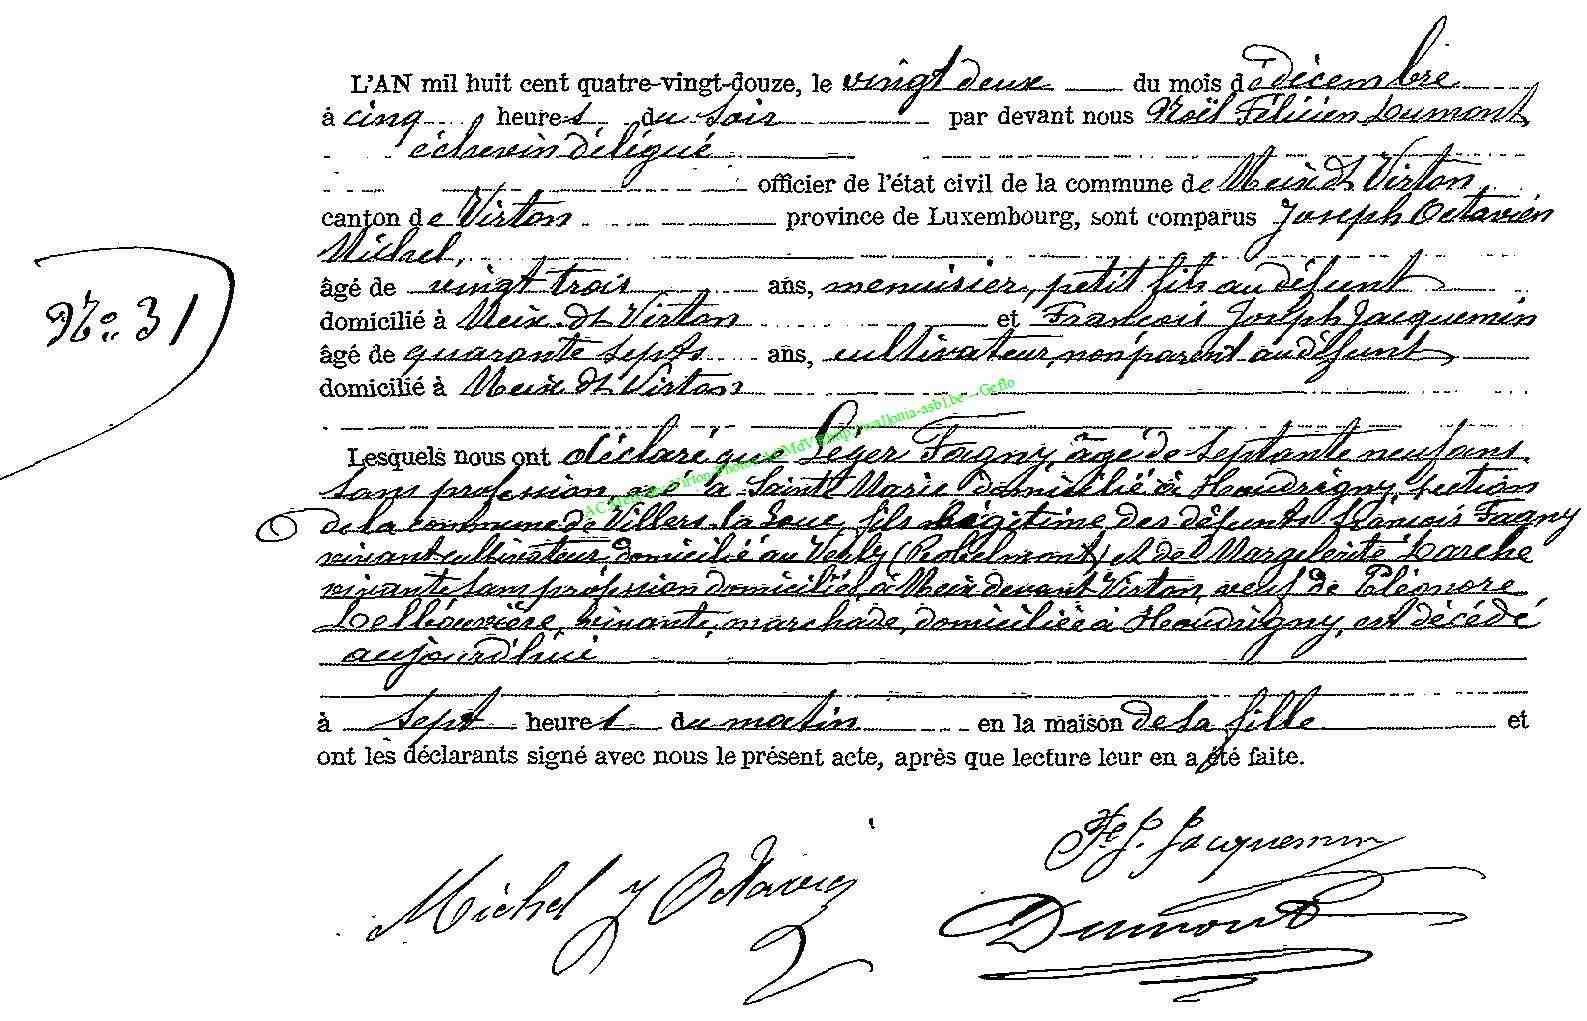 L'AN mil huit cent quatre-vingt-douze, le vingt deux du mois de décembre
à cinq heures du soir par devant nous Noël Félicien Dumont
échevin délégué
officier de l'état civil de la commune de Meix dt Virton
canton de Virton province de Luxembourg, sont comparus Joseph Octavien
Michel,
âgé de vingt trois ans, menuisier, petit fils au défunt
domicilié à Meix-dt Virton et François Joseph Jacquemin
N° 31
âgé de quarante septs ans, cultivateur, non parent au défunt
domicilié à Meix dt Virton
Lesquels nous ont déclaré que Léger Fagny, âgé de septante neuf ans
sans profession, né à Saint Marie domicilié à Houdrigny, section
de la commune de Villers-la-Loue, fils légitime des défunts françois Fagny
vivant cultivateur, domicilié au (Robelmont) et de Margelerite Larche
vivante sans profession domiciliée à Meix devant Virton, veuf de Eléonore
vivante, marchade, domiciliée à Houdrigny, est décédé
aujourd'hui
à sept heures du matin en la maison de sa fille et
ont les déclarants signé avec nous le présent acte, après que lecture leur en a été faite.
Fs J. Jacquemin
Michel J Octavien
Dumont